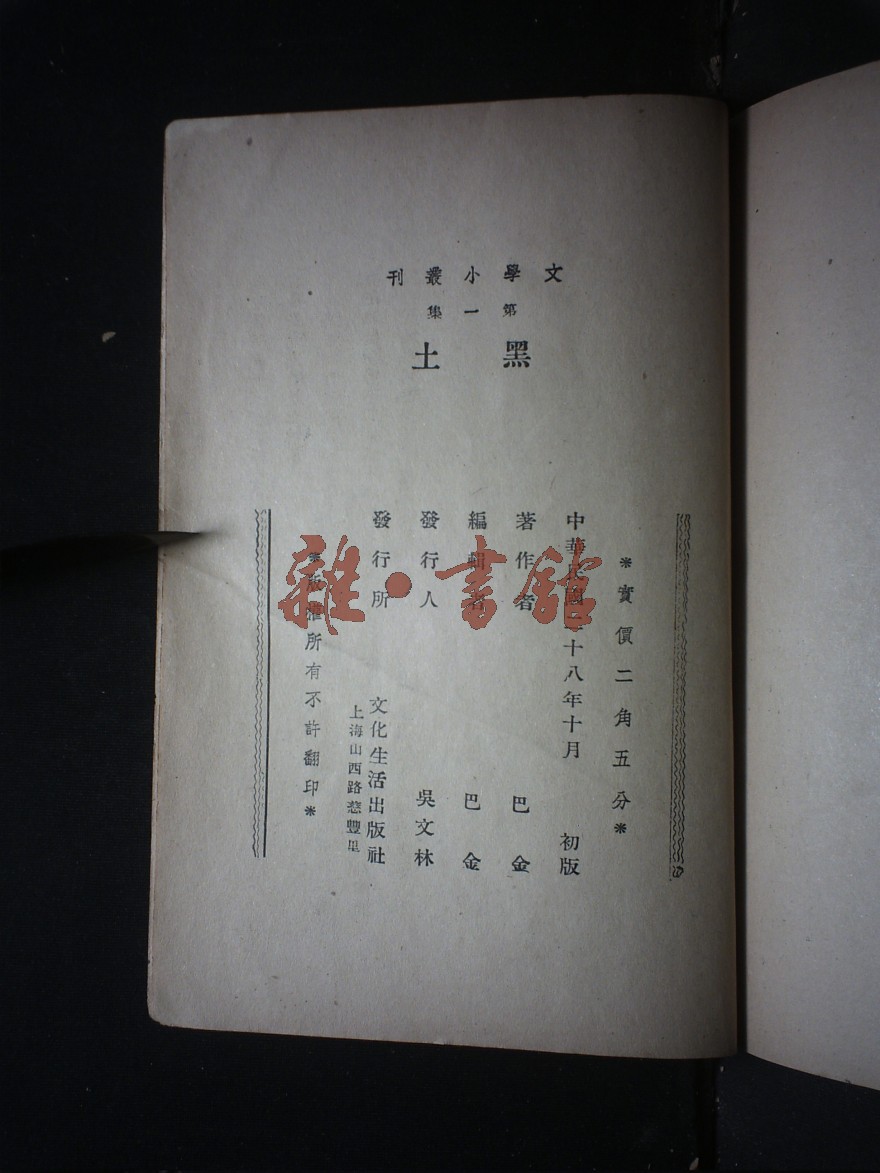 文學小叢刊
第一集
黑土
*實價二角五分*
中華民國二十八年十月 初版
著作者 巴金
編輯者 巴金
發行人 吳文林
發行所 文化生活出版社
上海山西路慈豐里
*版權所有不許翻印*
雜·書館